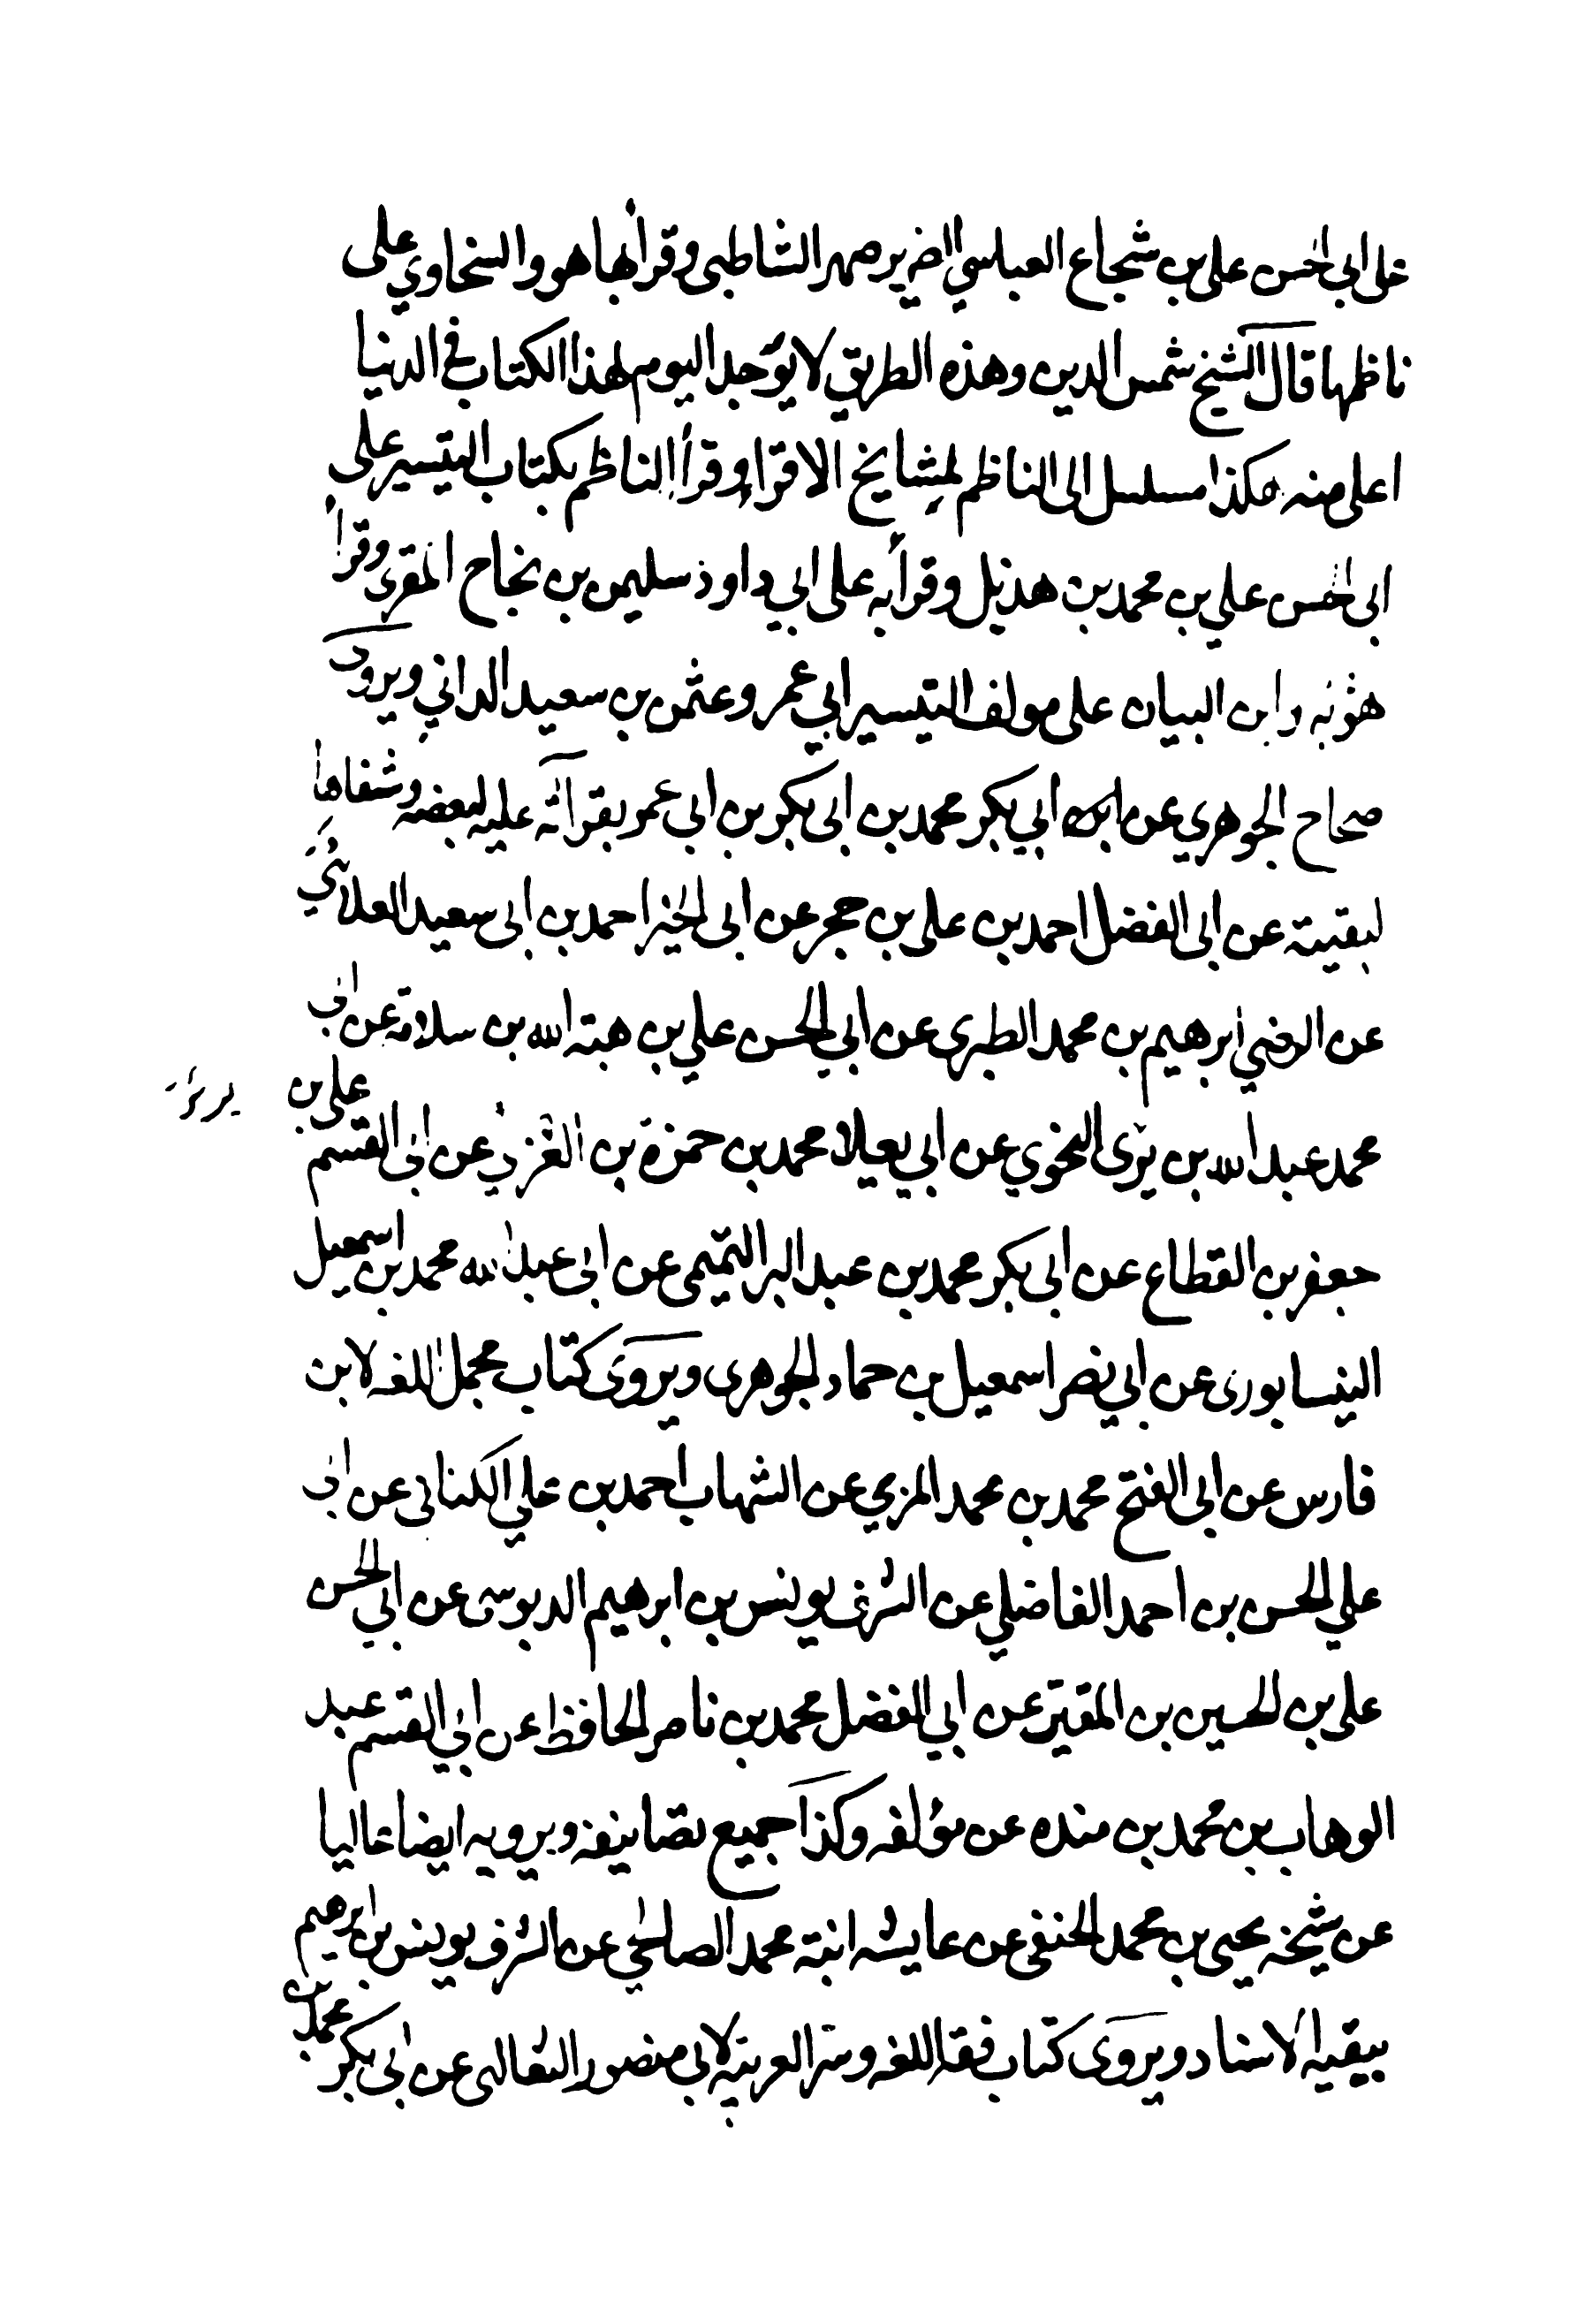 على ابي الحسن علي بن شجاع العباسي الضرير صهر الشاطبي وقرا بها هو والسخاوي على
ناظمها قال الشيخ شمس الدين وهذه الطريق لا يوجد اليوم لهذا الكتاب في الدنيا
اعلى منه هكذا مسلسل الى الناظم لمشايخ الاقرا وقرا الناظم بكتاب التيسير على
ابي الحسن علي بن محمد بن هذيل وقرا به على ابي داود سليمن بن نجاح المقري وقرا
هو به وابن البيان على مولف التيسير ابي عمرو عثمن بن سعيد الداني ويروى
صحاح الجوهري عن ابي بكر محمد بن ابي بكر بن ابي عمر بقراته عليه لبعضه وشفاها
لبقيته عن ابي الفضل احمد بن علي بن حجر عن ابي الخير احمد بن ابي سعيد العلائي
عن الرضي ابرهيم بن محمد الطبري عن ابي الحسن علي بن هبة الله بن سلامة عن ابي
محمد عبد الله بن بري النحوي عن ابي يعلا محمد بن حمزة بن العزفي عن ابي القسم علي بن
جعفر بن القطاع عن ابي بكر محمد بن عبد البر التميمي عن ابي عبد الله محمد بن اسمعيل
النيسابوري عن ابي نصر اسمعيل بن حماد الجوهري ويروى كتاب مجمل اللغه لابن
فارس عن ابي الفتح محمد بن محمد المزي عن الشهاب احمد بن علي الكناني عن ابي
علي الحسن بن احمد الفاضلي عن الشرف يونس بن ابرهيم الدبوسي عن ابي الحسن
علي بن الحسين بن المقير عن ابي الفضل محمد بن ناصر الحافظ عن ابي القسم عبد
الوهاب بن محمد بن منده عن مؤلفه وكذا جميع تصانيفه ويرويه ايضا عاليا
عن شيخه يحيى بن محمد الحنفي عن عايشه ابنة محمد الصالحي عن الشرف يونس بن ابرهيم
ببقية الاسناد ويروى كتاب فقه اللغه وسر العربية لابي منصور الثعالبي عن ابي بكر محمد بن